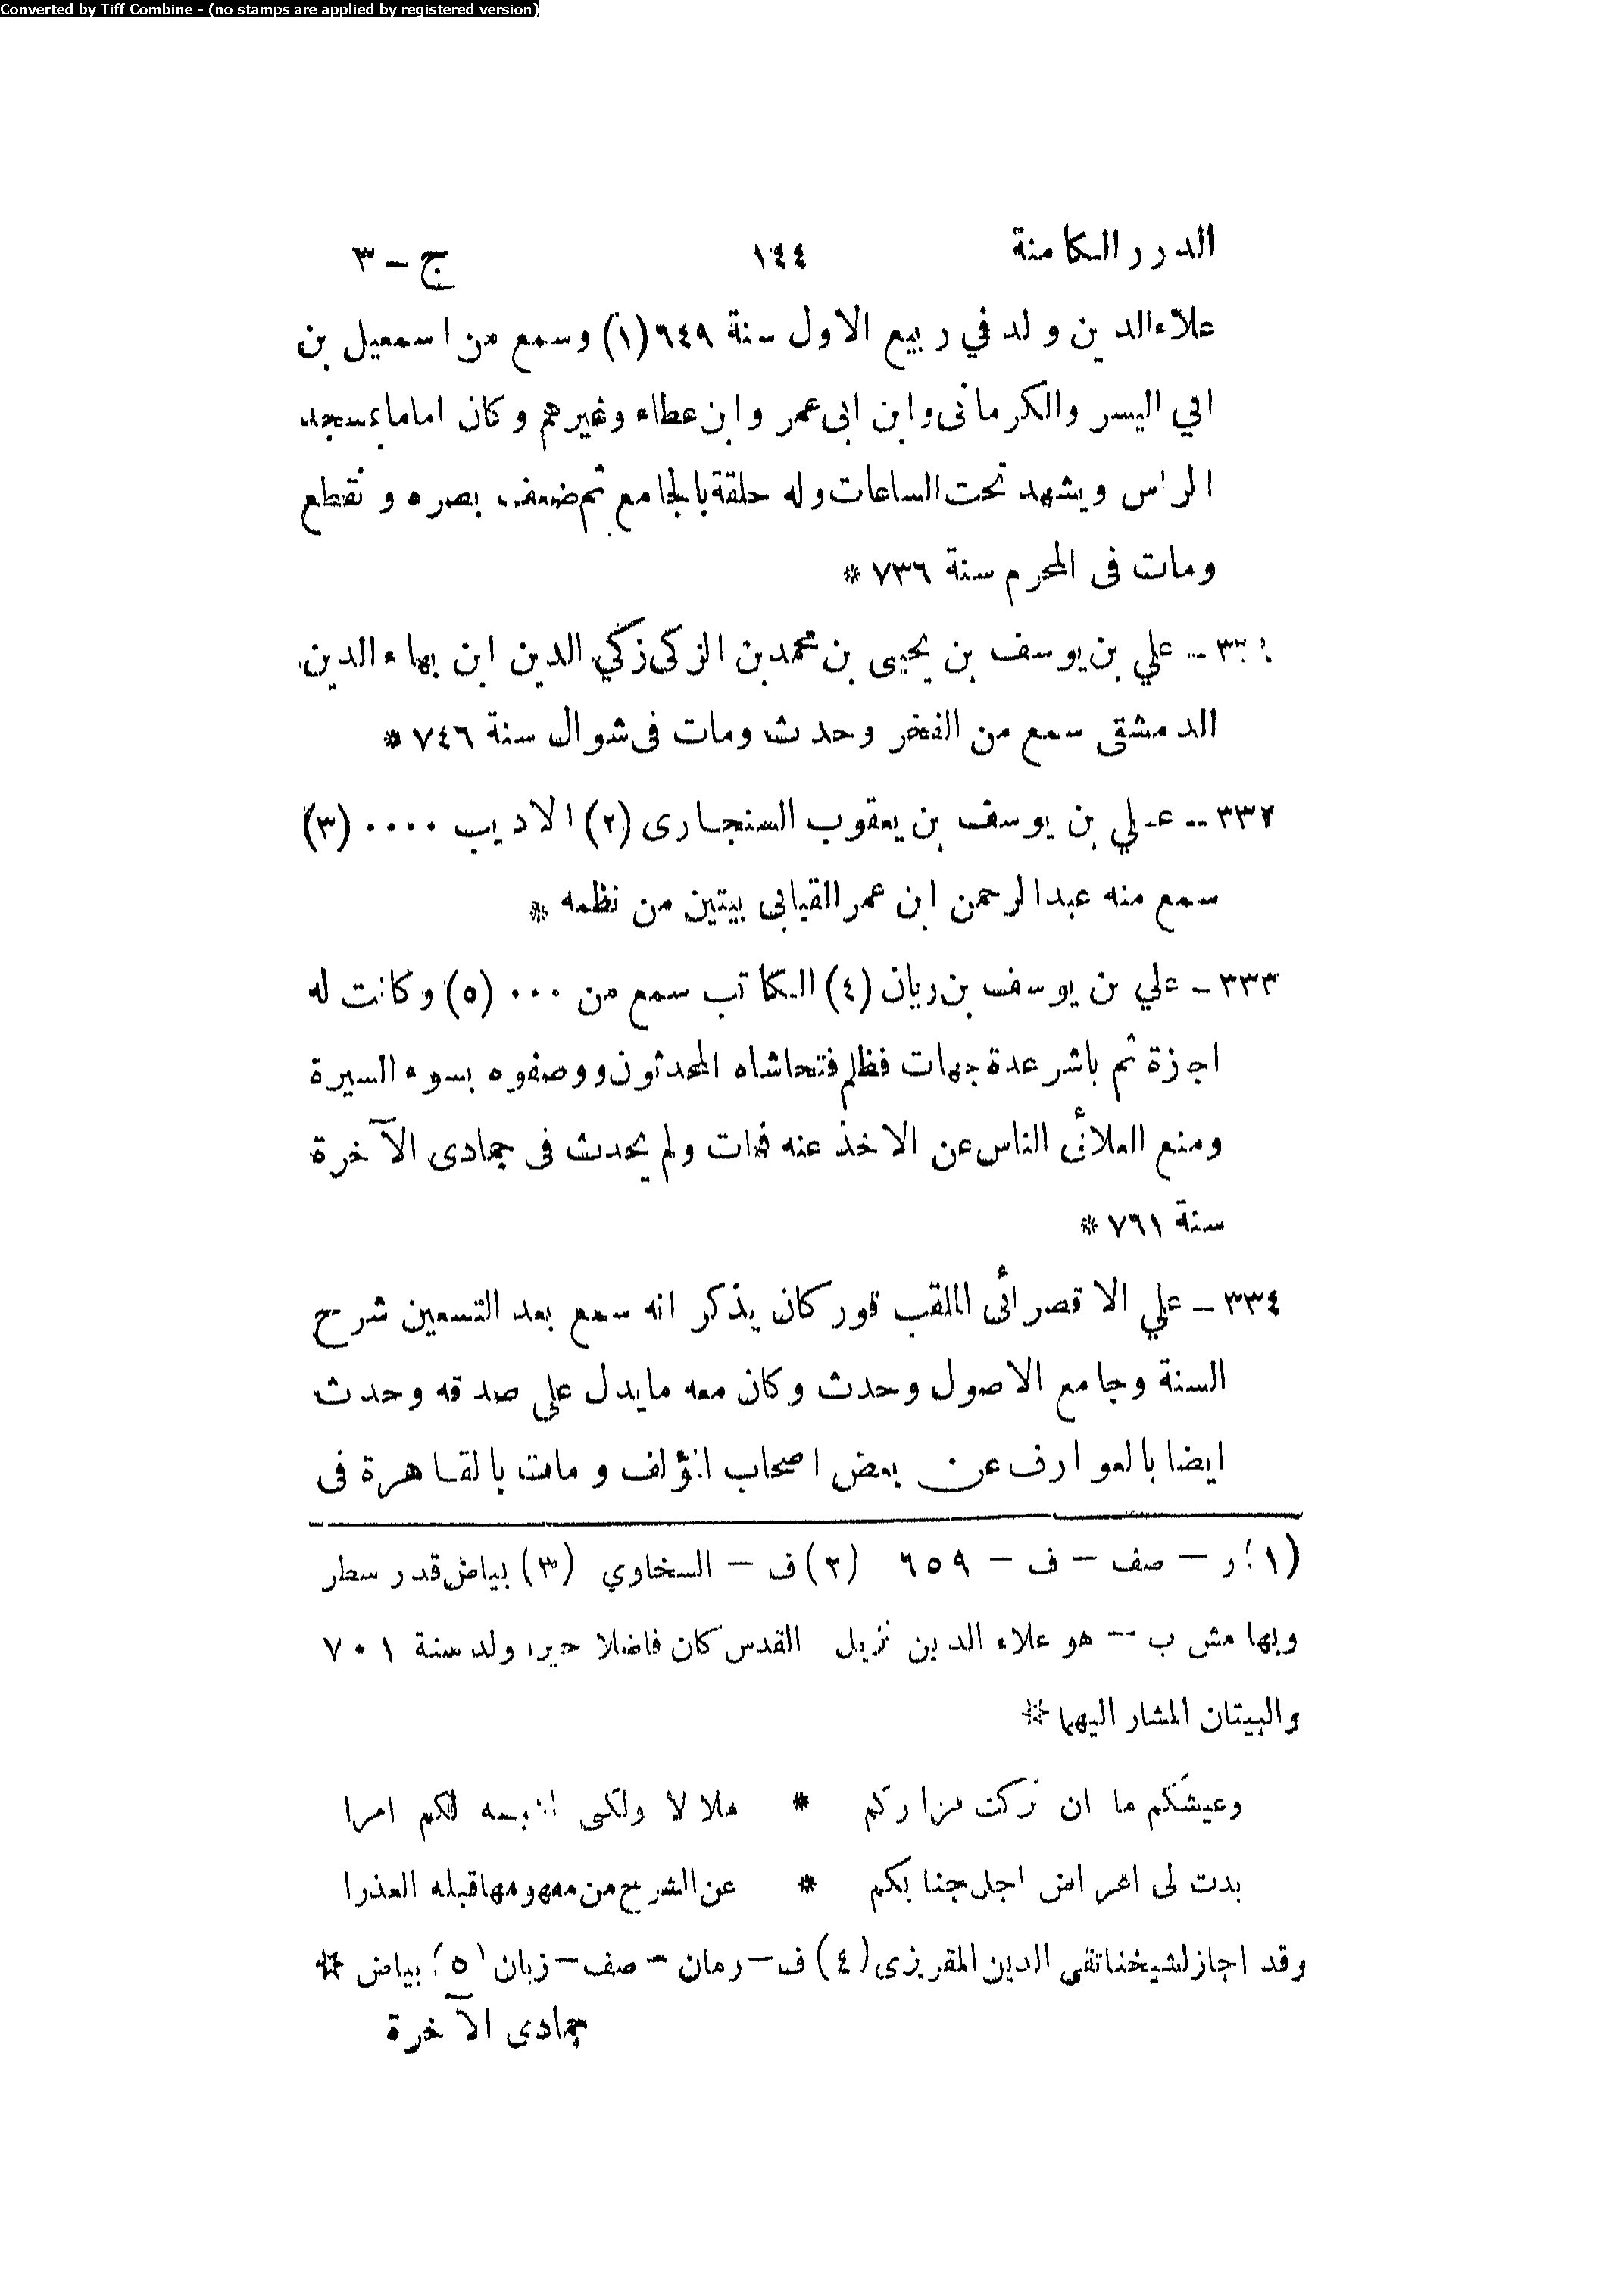 Converted by Tiff Combine - (no stamps are applied by registered version)
الدرر الكامنة ١٤٤ ج - ٣
علاء الدين ولد في ربيع الاول سنة ٦٤٩ (١) وسمع من اسمعيل بن
ابي اليسر والكرمانى وابن ابى عمر وابن عطاء وغيرهم وكان اماما بمسجد
الراس ويشهد تحت الساعات وله حلقة بالجامع ثم ضعف بصره و نقطع
ومات فى المحرم سنة ٧٣٦ *
علي بن يوسف بن يحيى بن محمد بن الزكى زكي الدين ابن بهاء الدين
الدمشقى سمع من الفخر وحدث ومات فى شوال سنة ٧٤٦ *
٣٣٢ - علي بن يوسف بن يعقوب السنجارى (٢) الاديب ٠٠٠٠ (٣)
سمع منه عبد الرحمن ابن عمر القبابى بيتين من نظمه *
٣٣٣ - علي بن يوسف بن ريان (٤) الكاتب سمع من ٠٠٠ (٥) وكانت له
اجزة ثم باشر عدة جهات فظلم فتحاشاه المحدثون ووصفوه بسوء السيرة
ومنع العلائى الناس عن الاخذ عنه فمات ولم يحدث فى جمادى الآخرة
سنة ٧٦١ *
٣٣٤ - علي الاقصرائى الملقب قور كان يذكر انه سمع بعد التسعين شرح
السنة وجامع الاصول وحدث وكان معه مايدل على صدقه وحدث
ايضا بالعوارف عن بعض اصحاب المؤلف ومات بالقاهرة فى
(١) ر - صف - ف - ٦٥٩ (٢) ف - السخاوي (٣) بياض قدر سطر
وبهامش ب -- هو علاء الدين نزيل القدس كان فاضلا خيرا ولد سنة ٧٠١
والبيتان المشار اليهما *
وعيشكم ما ان تركت مزاركم * ملالا ولكن لكم امرا
بدت لى اعراض اجل جنابكم * عن الشرح من مفهومها قبله العذرا
وقد اجاز لشيخنا تقى الدين المقريزى (٤) ف - رمان - صف - زبان (٥) بياض *
جمادى الآخرة